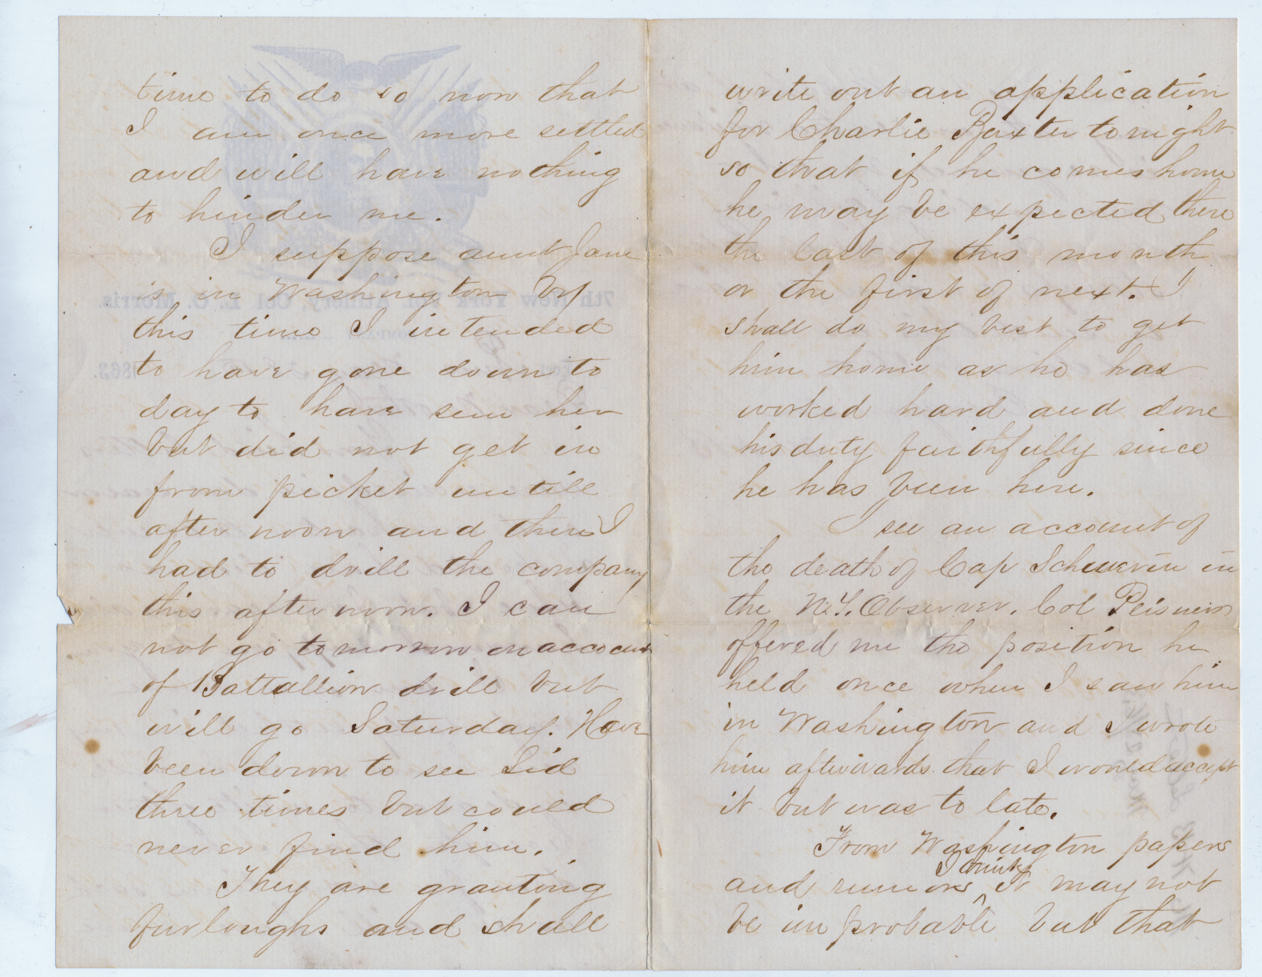 time to do so now that
I am once more settled
and will have nothing
to hinder me.
I suppose aunt Jane
is in Washington by
this time I intended
to have gone down to
day to have seen her
but did not get in
from picket untill
after noon and then I
had to drill the company
this afternoon. I can
not go tomorrow on account
of Battallion drill but
will go Saturday. Have
been down to see Sid
three times but could
never find him.
They are granting
furloughs and shall
write out an application
for Charlie Baxter tonight
so that if he comes home
he may be expected there
the last of this month
or the first of next. I
shall do my best to get
him home as he has
worked hard and done
his duty faithfully since
he has been here.
I see an account of
the death of Cap Schwerin in
the N.Y. Observer. Col Peisners
offered me the position he
held once when I saw him
in Washington and I wrote
him afterwards that I would accept
it but was to late.
From Washington papers
and rumors I think it may not
be improbable but that
7th New York Hy. Artillery, Col L. O. Morris.
1863.